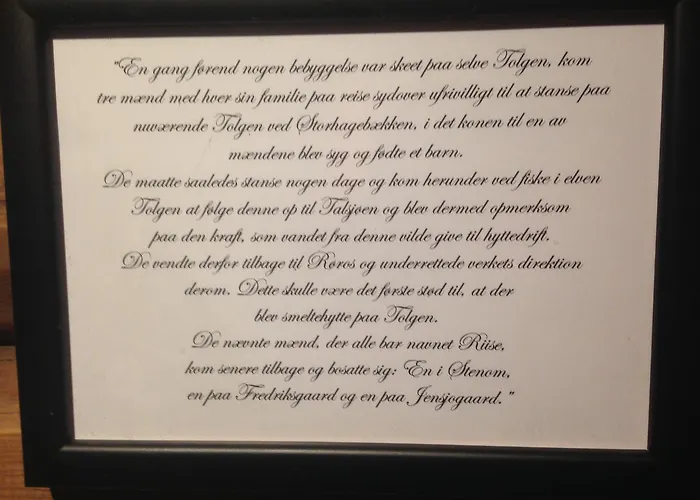 "En gang førend nogen bebyggelse var skeet paa selve Tolgen, kom
tre mænd med hver sin familie paa reise sydover ufrivilligt til at stanse paa
nuværende Tolgen ved Storhagebækken, i det konen til en av
mændene blev syg og fødte et barn.
De maatte saaledes stanse nogen dage og kom herunder ved fiske i elven
Tolgen at følge denne op til Talsjøen og blev dermed opmerksom
paa den kraft, som vandet fra denne vilde give til hyttedrift.
De vendte derfor tilbage til Røros og underrettede verkets direktion
derom. Dette skulle være det første stød til, at der
blev smeltehytte paa Tolgen.
De nævnte mænd, der alle bar navnet Riise,
kom senere tilbage og bosatte sig: En i Stenom,
en paa Fredriksgaard og en paa Jensjogaard."